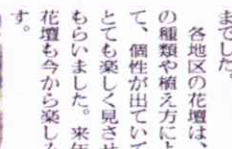 までした。
各地区の花壇は、
の種類や植え方によ
て、個性が出ていて
とても楽しく見させ
もらいました。来年
花壇も今から楽しみ
す。